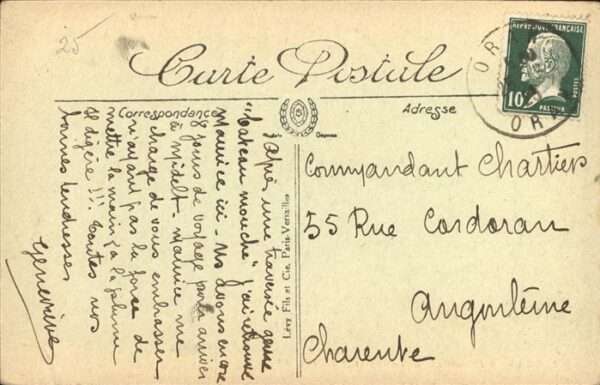 25
Carte Postale
Correspondance
Adresse
REPUBLIQUE FRANÇAISE
POSTES
10
PASTEUR
OR
Après une traversée genre
"bateau mouche" j'ai retrouvé
Maurice ici - Ns avons encore
8 jours de voyage pour arriver
à Midelt - Maurice me
charge de vous embrasser
n'ayant pas la force de
mettre la main à la plume
Il digère !!! Toutes nos
bonnes tendresses
Geneviève
Levy Fils et Cie, Paris-Versailles
Commandant Chartier
55 Rue Cordoran
Angoulême
Charente